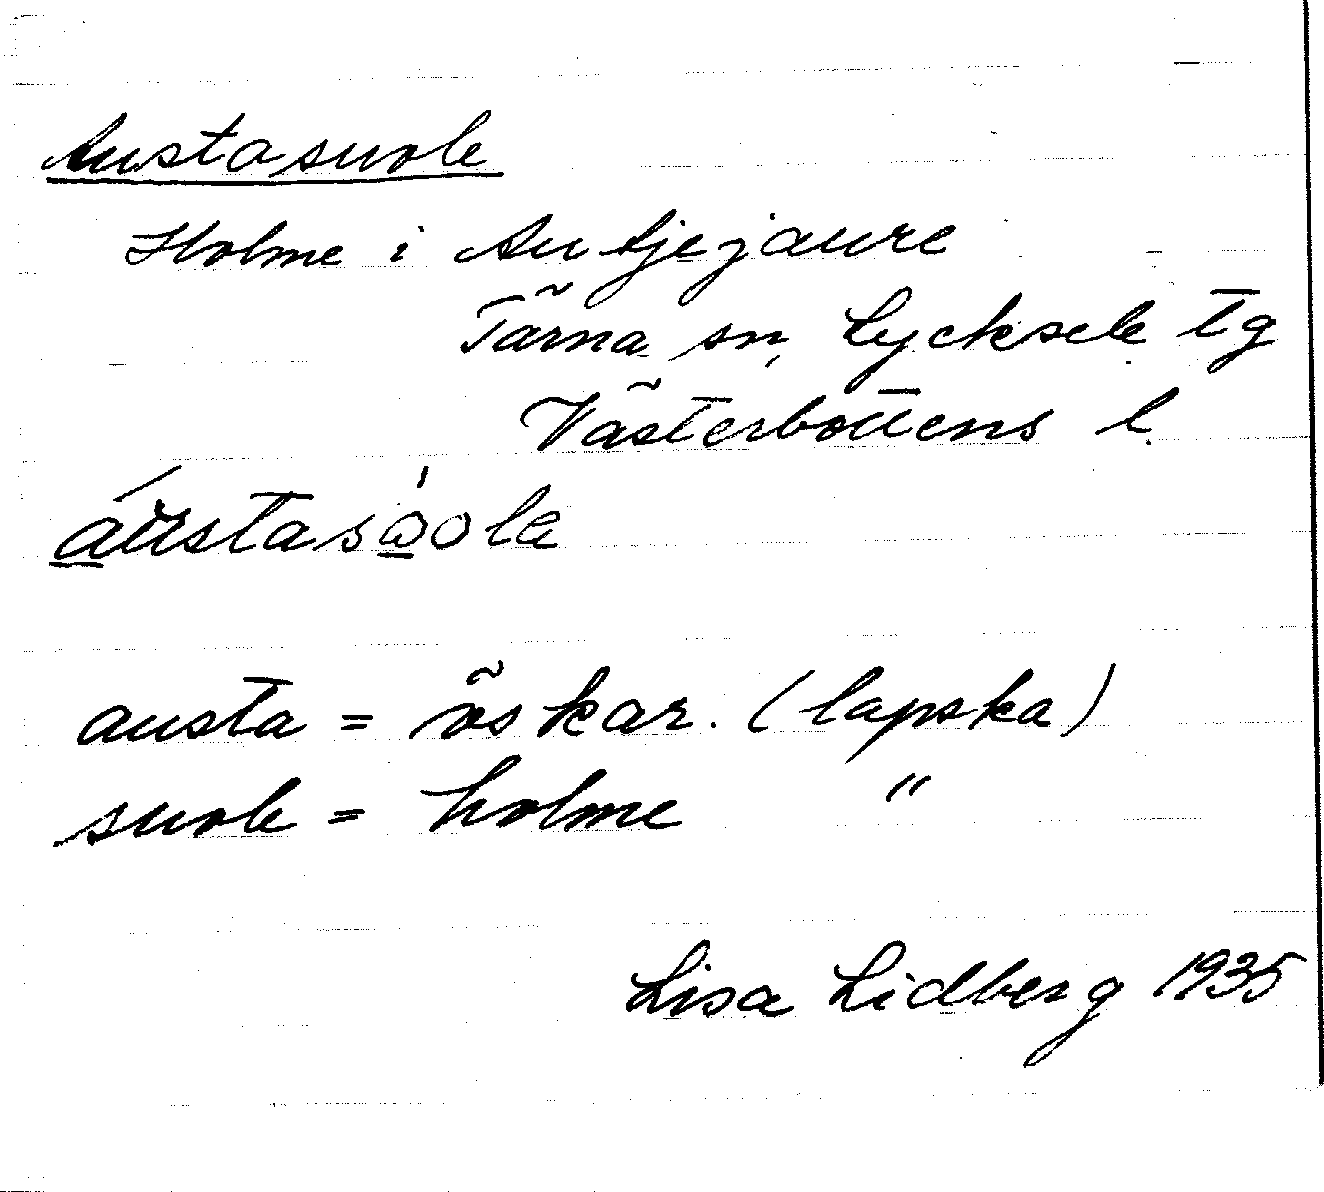 Austasuole
Holme i Autjejaure
Tärna sn, Lycksele tg
Västerbottens l.
áustasωola
austa = öskar. (lapska)
suole = holme "
Lisa Lidberg 1935